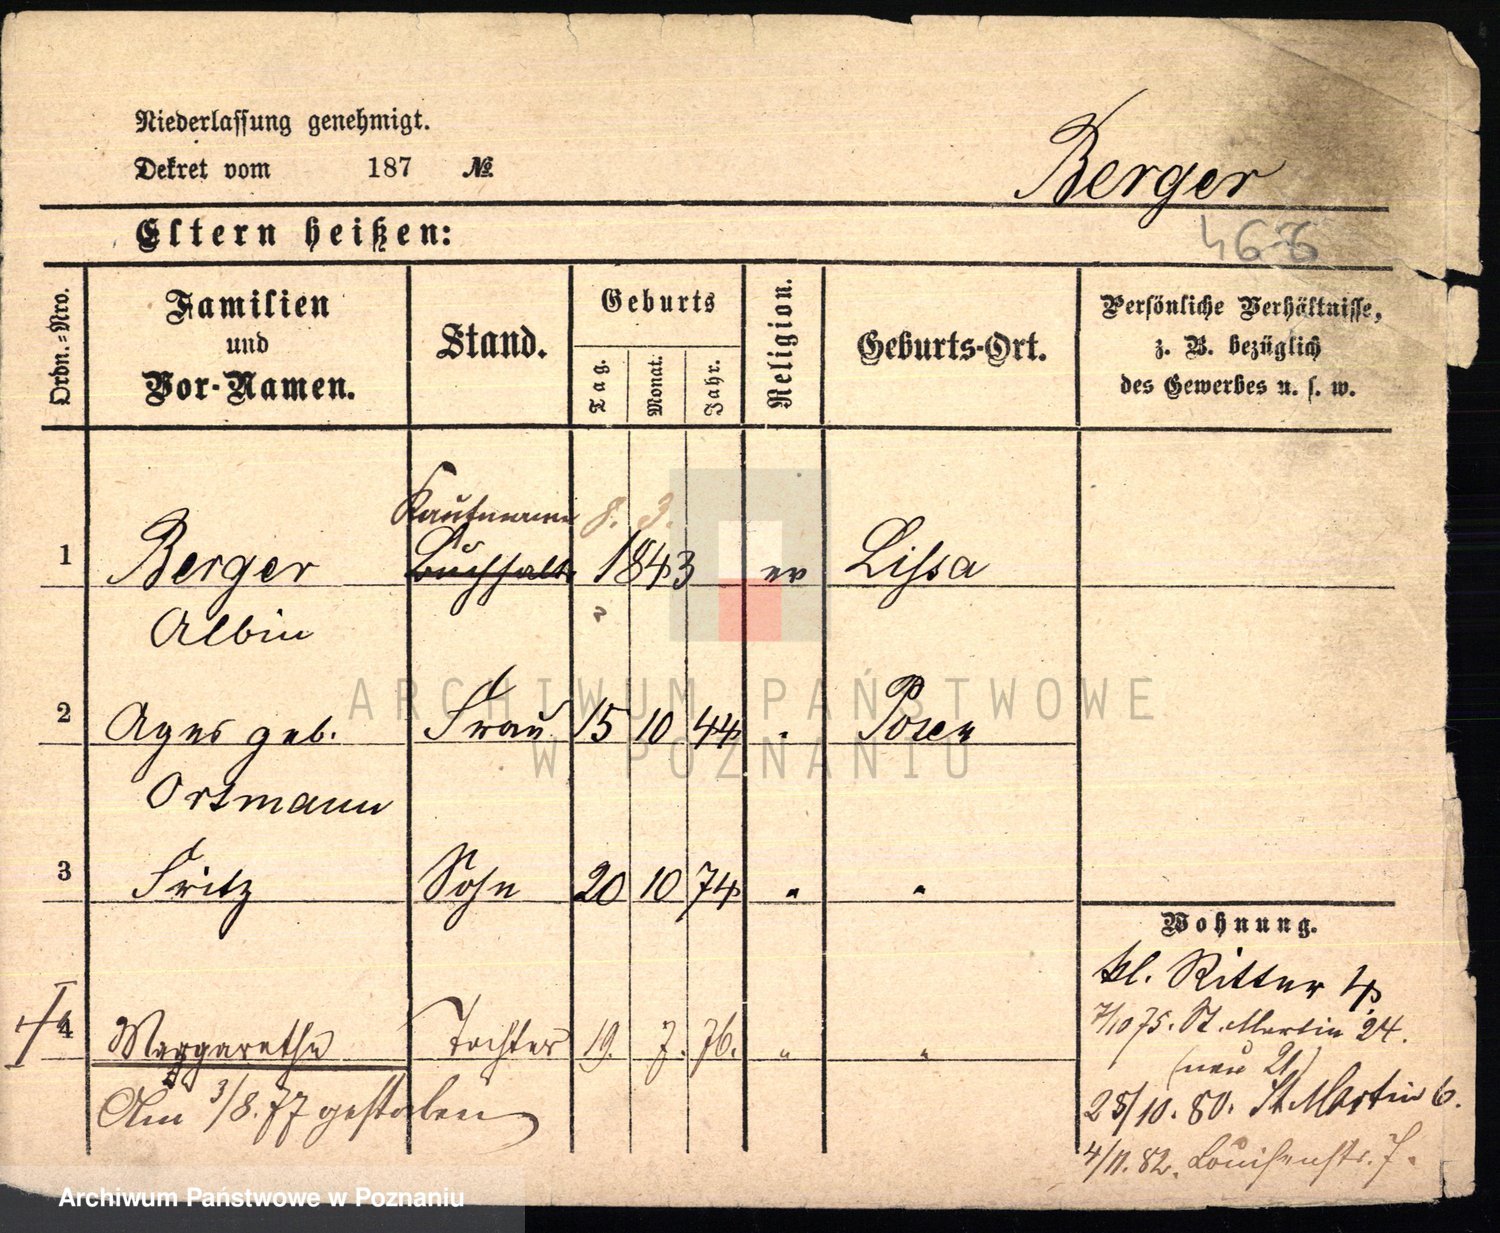 Niederlassung genehmigt.
Dekret vom 187 №
Berger
Eltern heißen:
466
Ordn.-Nro.
Familien
und
Vor-Namen.
Stand.
Geburts
Tag.
Monat.
Jahr.
Religion.
Geburts-Ort.
Persönliche Verhältnisse,
z. B. bezüglich
des Gewerbes u. s. w.
Kaufmann 8. 3.
1 Berger Buchhalt 1843 ev Lissa
Albin
ARCHIWUM PAŃSTWOWE
W POZNANIU
2 Agnes geb. Frau 15 10 44 " Posen
Ortmann
3 Fritz Sohn 20 10 74 " "
Wohnung.
kl. Ritter 4
7/10 75. St. Martin 24.
(neu 21)
4 Margarethe Tochter 19. 7. 76. " "
Am 3/8. 77 gestorben
25/10. 80. St Martin 6.
4/11. 82. Louisenstr. 7.
Archiwum Państwowe w Poznaniu